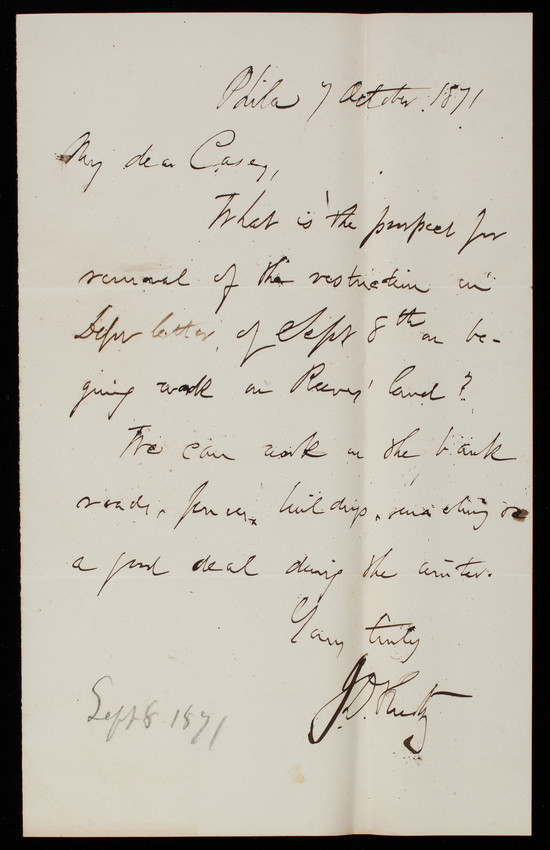 Phila 7 October 1871
My dear Casey,
What is the prospect for
removal of the restriction in
Dept letter of Sept 8th on be-
ging work on Reeves' land?
We can work on the bank
roads, fences, buildings,
a good deal during the winter.
Yours truly
J.D. Kurtz
Sept 8 1871